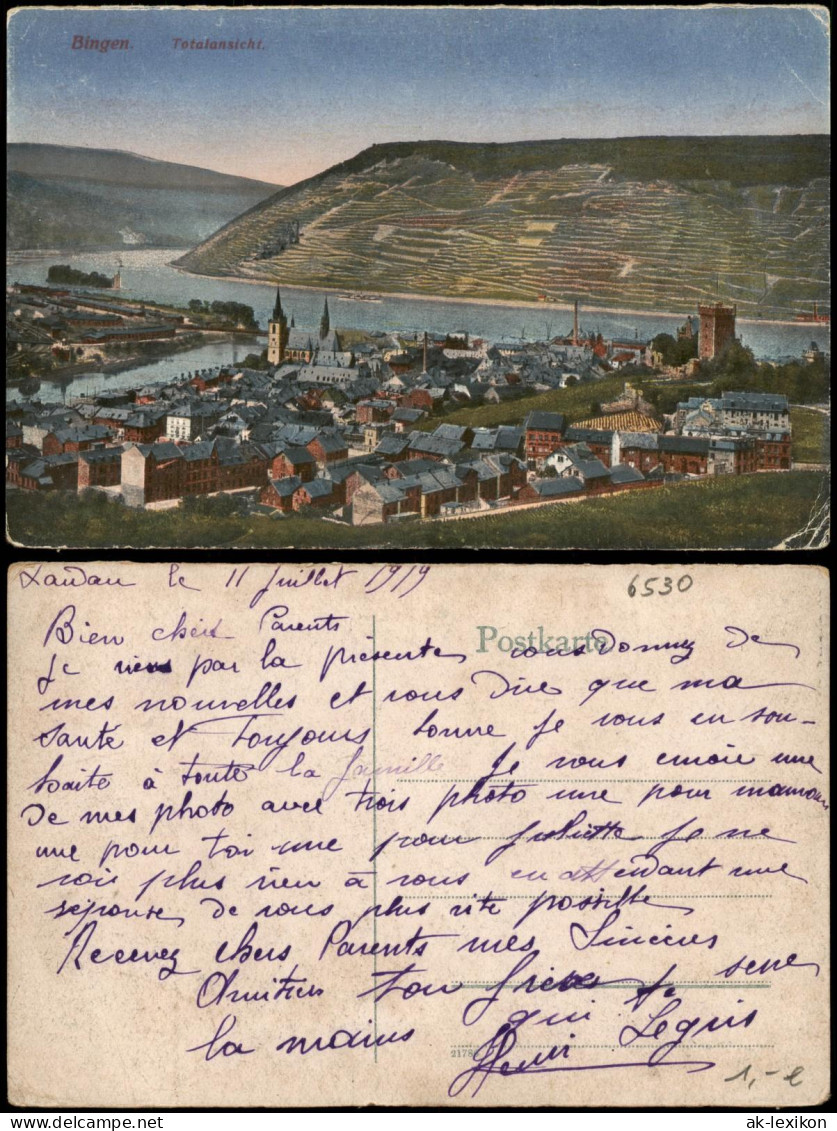 Bingen. Totalansicht.
Landau le 11 Juillet 1919
6530
Bien chers Parents
Postkarte
Je viens par la présente vous Donnez De
mes nouvelles et vous Dire que ma
santé et Toujours bonne Je vous en sou-
haite à toute la famille Je vous envoie une
De mes photo avec trois photo une pour maman
une pour toi une pour Juliette Je ne
vois plus rien à vous en attendant une
réponse De vous plus vite possible
Recevez chers Parents mes Sincères
Amitiers ton frère qui te serre
la mains
Henri Legris
2178
1,- e
www.delcampe.net
ak-lexikon